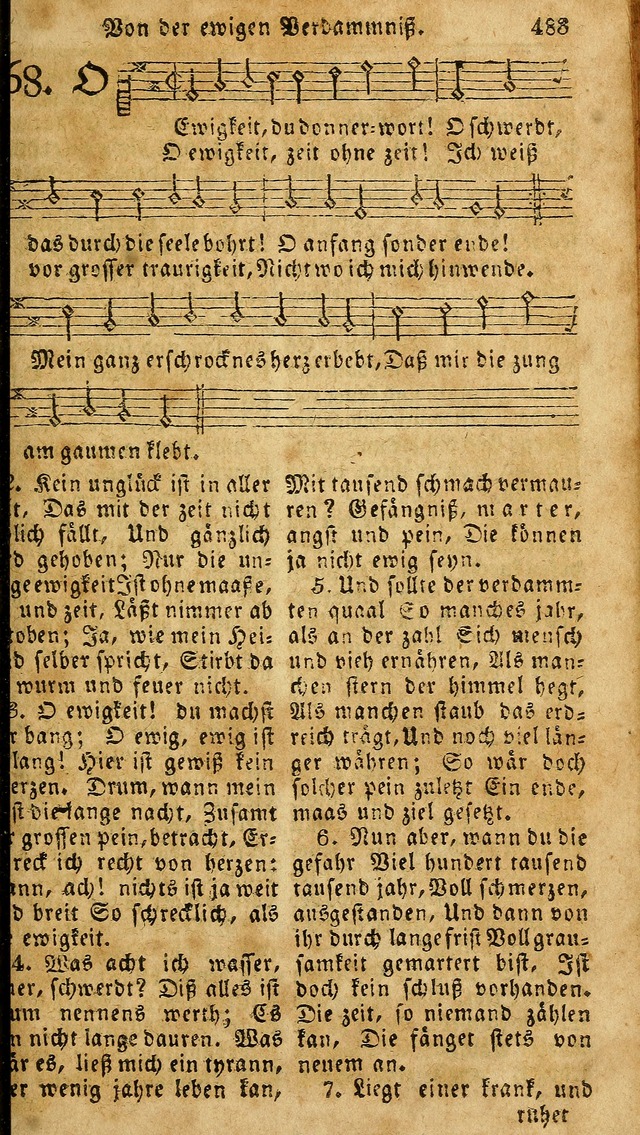 Von der ewigen Verdammniß. 483
68. O
Ewigkeit, du donner=wort! O schwerdt,
O ewigkeit, zeit ohne zeit! Ich weiß
das durch die seele bohrt! O anfang sonder ende!
vor grosser traurigkeit, Nicht wo ich mich hinwende.
Mein ganz erschrocknes herz erbebt, Daß mir die zung
am gaumen klebt.
2. Kein unglück ist in aller
t, Das mit der zeit nicht
lich fällt, Und gänzlich
d gehoben; Nur die un=
ge ewigkeit Ist ohne maaße,
und zeit, Läßt nimmer ab
toben; Ja, wie mein Hei=
d selber spricht, Stirbt da
wurm und feuer nicht.
3. O ewigkeit! du machst
r bang; O ewig, ewig ist
lang! Hier ist gewiß kein
erzen. Drum, wann mein
st die lange nacht, Zusamt
r grossen pein, betracht, Er=
reck ich recht von herzen:
ann, ach! nichts ist ja weit
d breit So schrecklich, als
ewigkeit.
4. Was acht ich wasser,
er, schwerdt? Diß alles ist
um nennens werth; Es
n nicht lange dauren. Was
är es, ließ mich ein tyrann,
er wenig jahre leben kan,
Mit tausend schmach vermau=
ren? Gefängniß, marter,
angst und pein, Die können
ja nicht ewig seyn.
5. Und sollte der verdamm=
ten quaal So manches jahr,
als an der zahl Sich mensch
und vieh ernähren, Als man=
chen stern der himmel hegt,
Als manchen staub das erd=
reich trägt, Und noch viel län=
ger währen; So wär doch
solcher pein zuletzt Ein ende,
maas und ziel gesetzt.
6. Nun aber, wann du die
gefahr Viel hundert tausend
tausend jahr, Voll schmerzen,
ausgestanden, Und dann von
ihr durch lange frist Voll grau=
samkeit gemartert bist, Ist
doch kein schluß vorhanden.
Die zeit, so niemand zählen
kan, Die fänget stets von
neuem an.
7. Liegt einer krank, und
ruhet